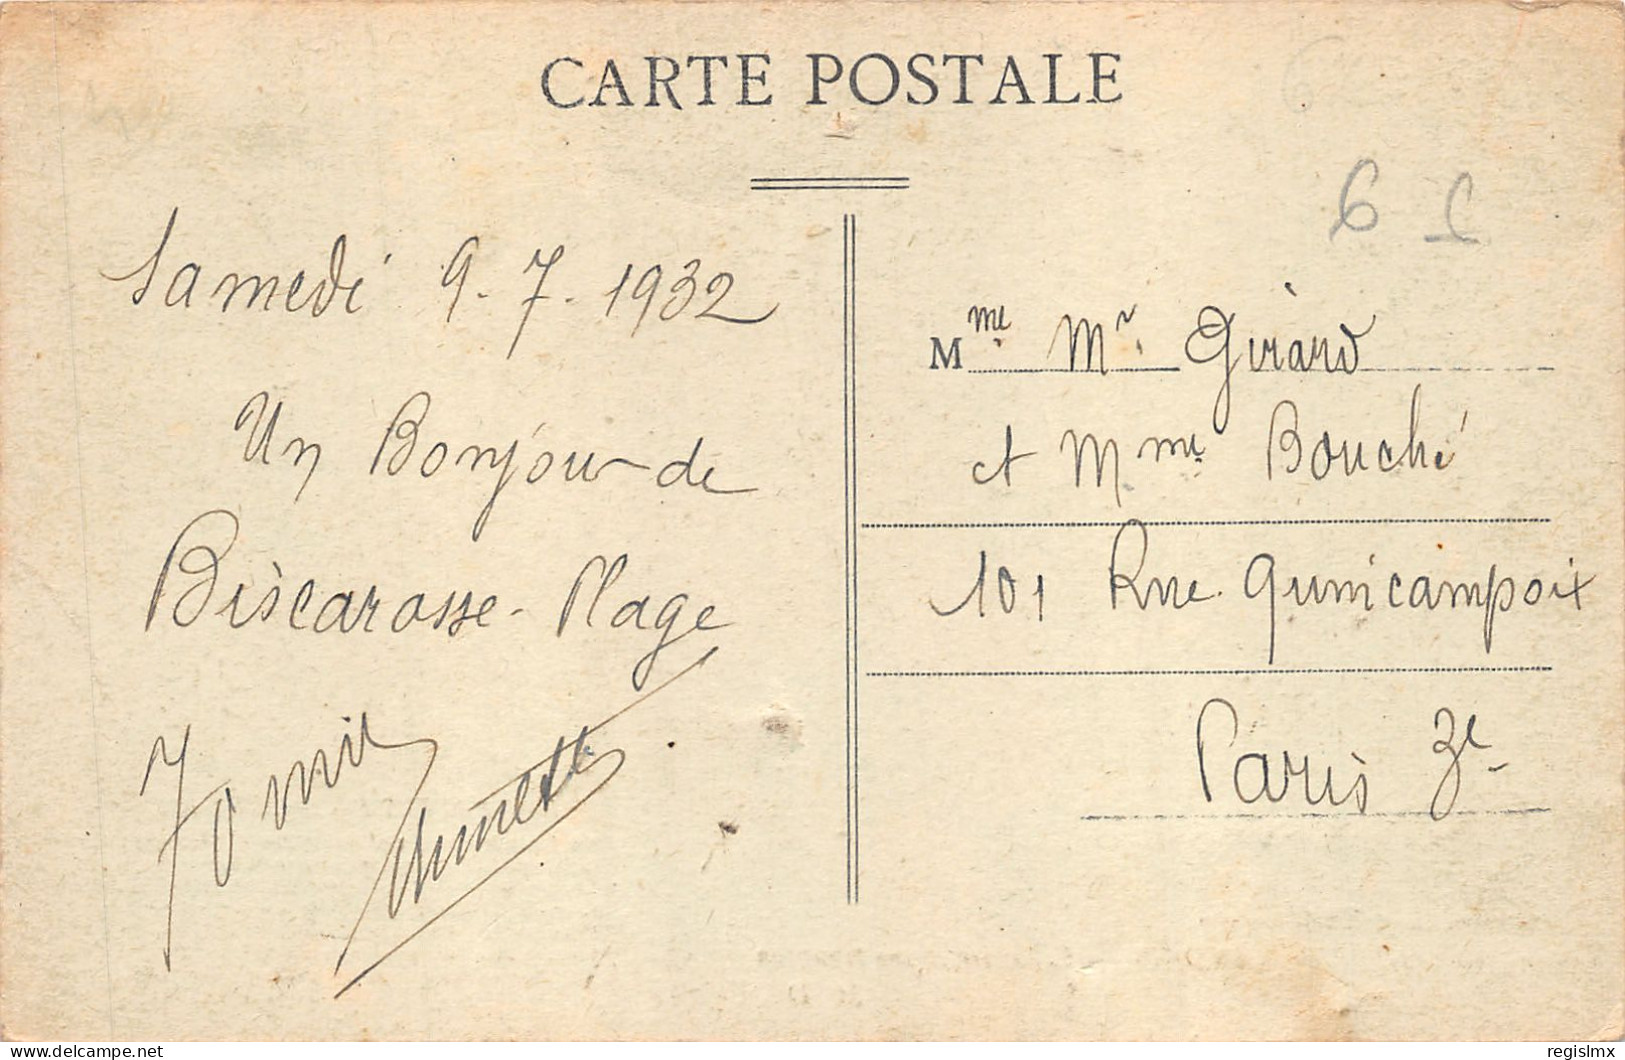 CARTE POSTALE
6
Samedi 9.7.1932
Un Bonjour de
Biscarosse-Plage
Annette
Mme Mr. Girard
et Mme Bouché
101 Rue Quincampoix
Paris 3e
delcampe.net
regislmx